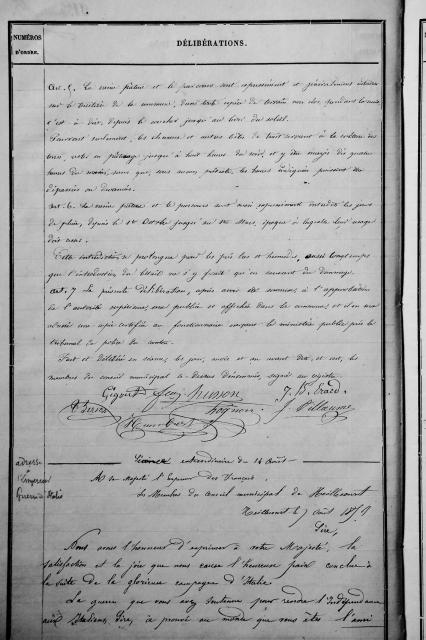 NUMÉROS
D'ORDRE.
DÉLIBÉRATIONS.
Art. 5. La vaine pâture et le parcours sont expressément et généralement interdits
sur le territoire de la commune, dans toute espèce de terrain non clos, pendant la nuit,
c'est à dire, depuis le coucher jusqu'au lever du soleil.
Pourront seulement, les chevaux et autres bêtes de trait servant à la culture des
terres, rester en pâturage jusqu'à huit heures du soir, et y être menés dès quatre
heures du matin, sans que, sous aucun prétexte, les heures indiquées puissent être
dépassées ou devancées.
Art. 6. La vaine pâture et le parcours sont aussi expressément interdits les jours
de pluie, depuis le 1er Octobre jusqu'au 1er Mars, époque à laquelle leur usage
doit cesser.
Cette interdiction se prolongera pour les prés bas et humides, aussi longtemps
que l'introduction du bétail ne s'y ferait qu'en causant du dommage.
Art. 7. La présente délibération, après avoir été soumise à l'approbation
de l'autorité supérieure, sera publiée et affichée dans la commune, et il en sera
adressé une copie certifiée au fonctionnaire exerçant le ministère public près le
tribunal de police du canton.
Fait et délibéré en séance, les jour, mois et an avant dits, et ont, les
membres du conseil municipal ci-dessus dénommés, signé au registre.
Husson
J. B. Erard
Hognon
J. Villaume
Séance extraordinaire du 14 Août
adresse
l'Empereur
Guerre d'Italie
A Sa Majesté l'Empereur des Français,
Les Membres du Conseil municipal de
7 Août 1859
Sire,
Nous avons l'honneur d'exprimer à votre Majesté, la
satisfaction et la joie que nous cause l'heureuse paix conclue à
la suite de la glorieuse campagne d'Italie.
La guerre que vous avez soutenue pour rendre l'Indépendance
aux Italiens, Sire, a prouvé au monde que vous êtes l'ami